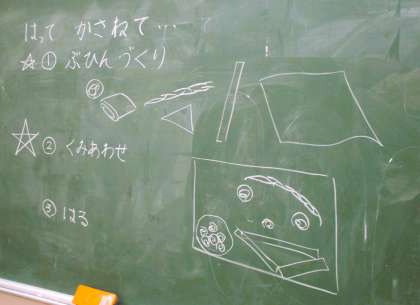 はって かさねて…
☆① ぶひんづくり
☆② くみあわせ
③ はる